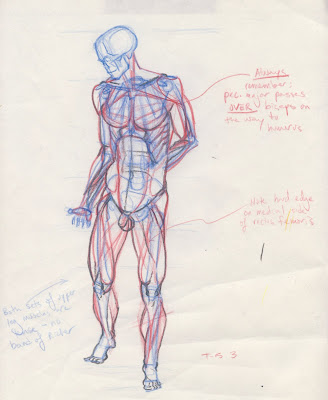 Always
remember:
pec. major passes
OVER biceps on
the way to
humerus
Note hard edge
on medial side
of rectus femoris
Both sets of upper
leg muscles
no
band of Richer
T.S 3